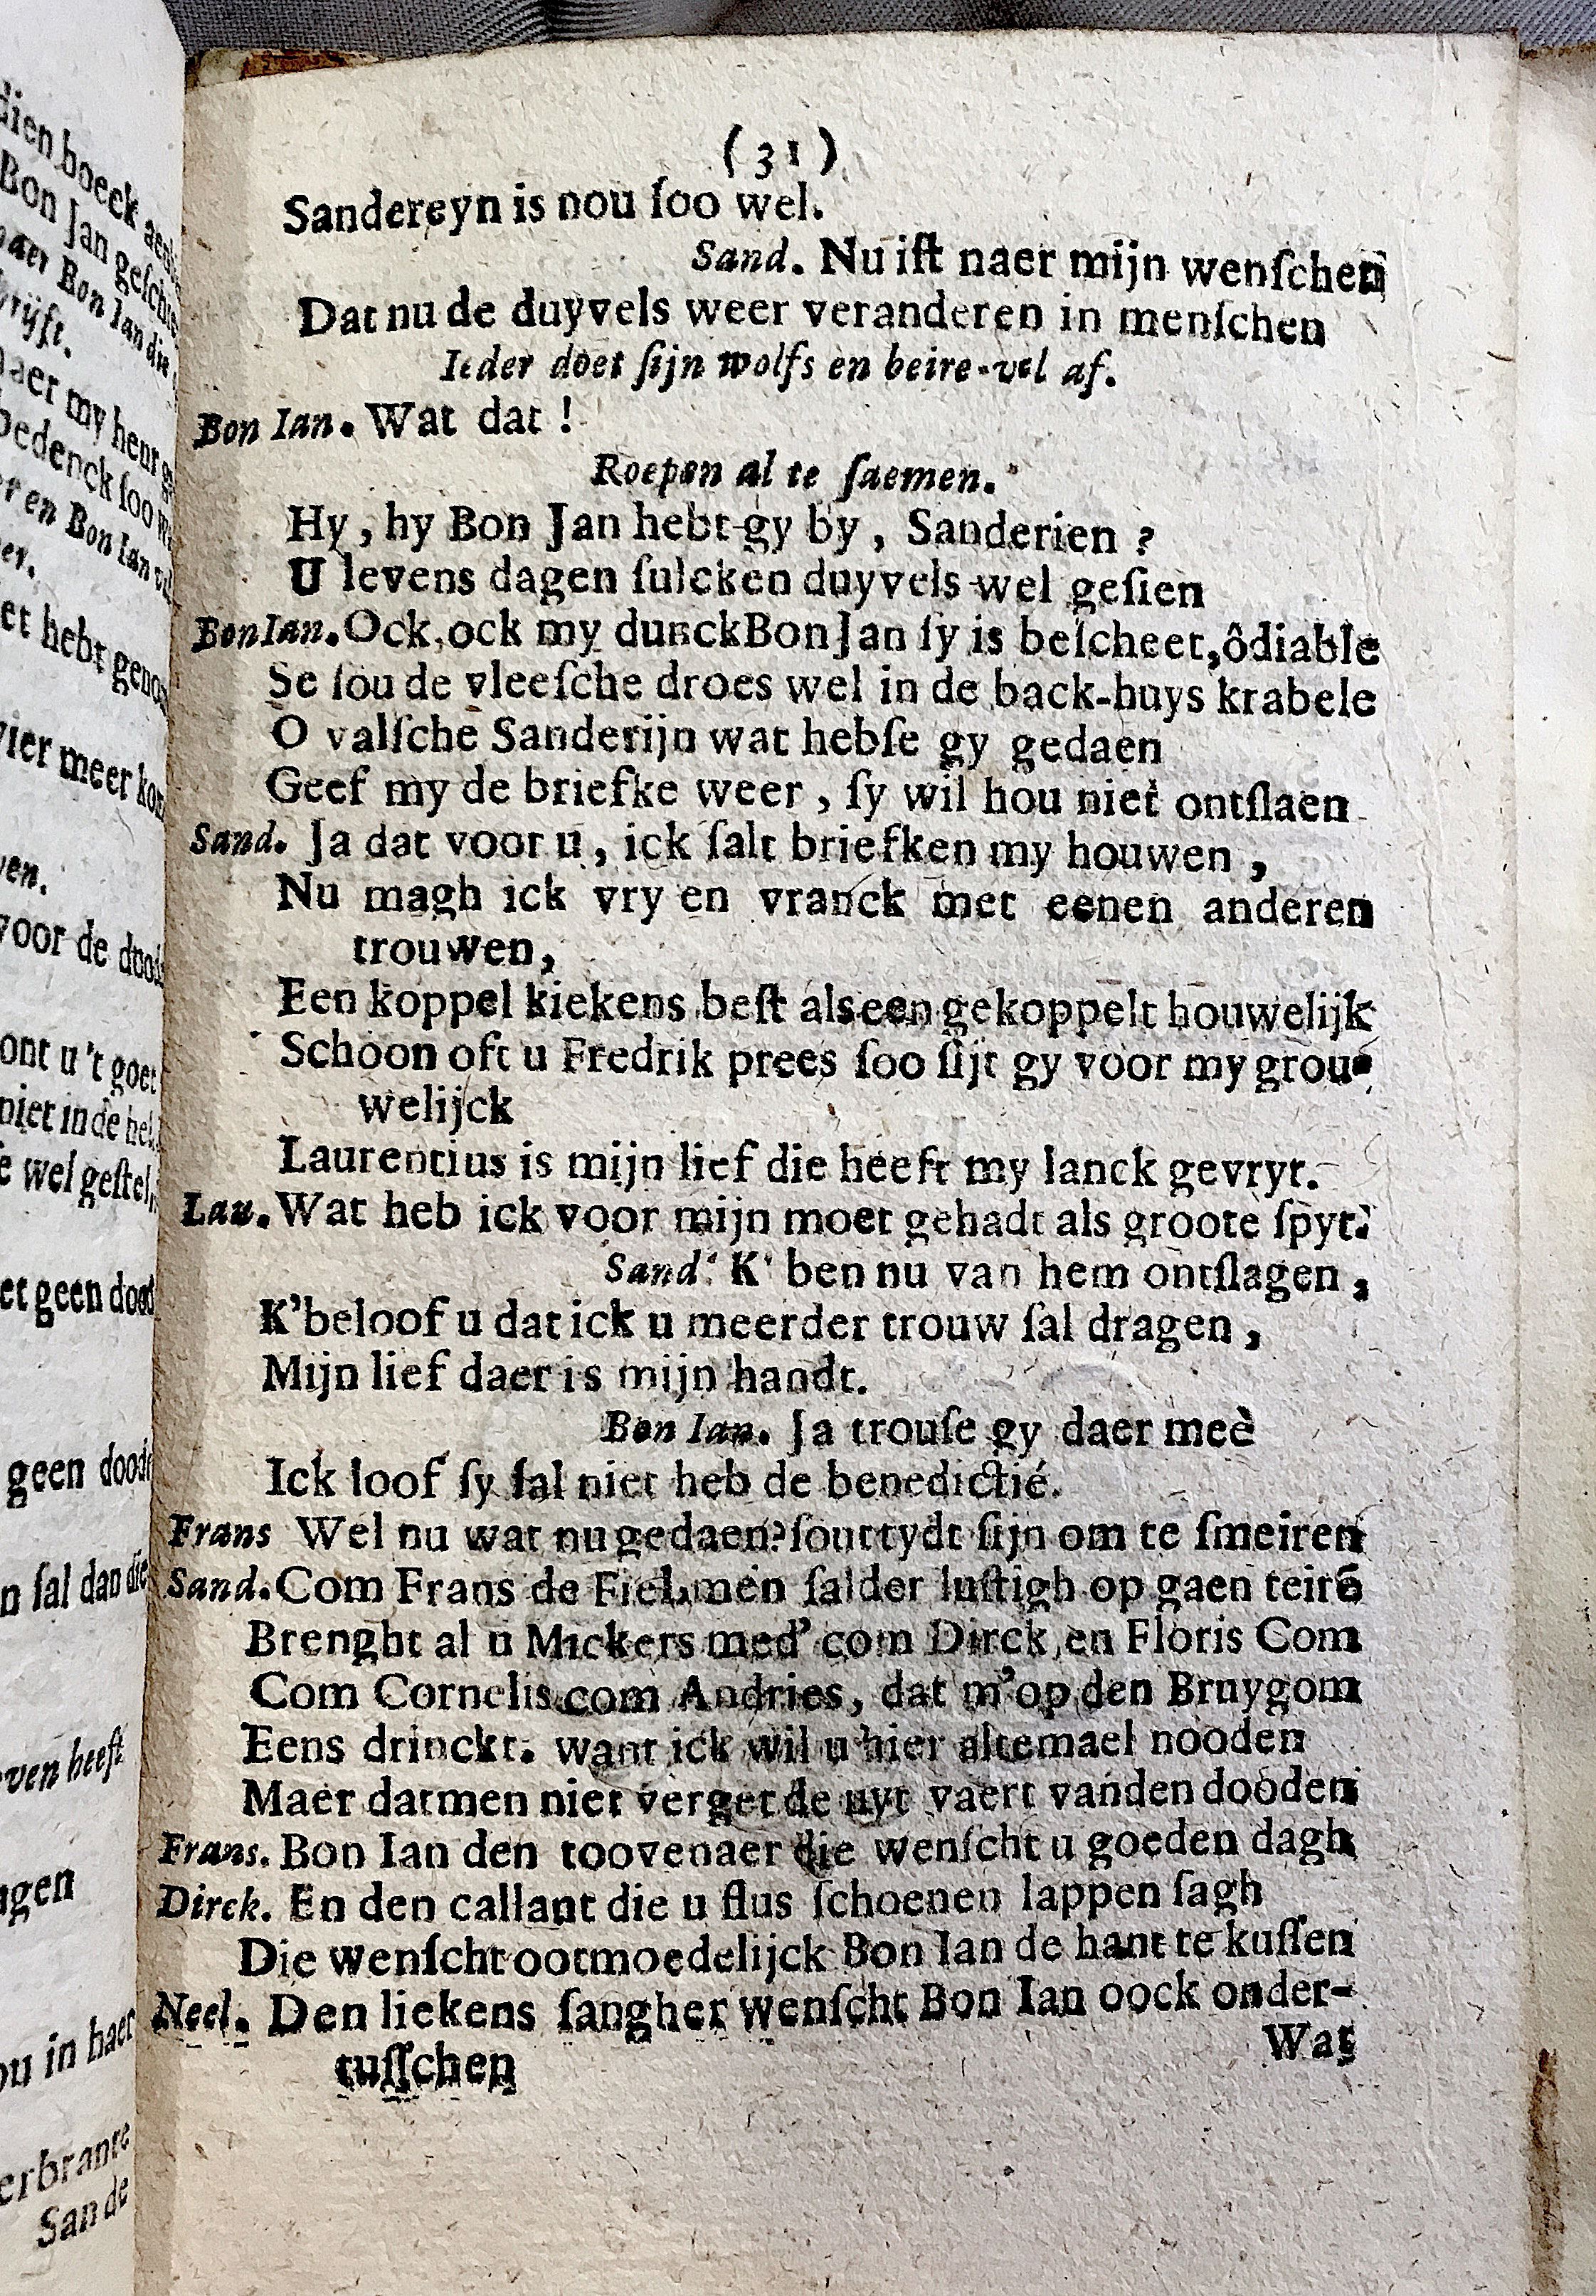 (31)
Sandereyn is nou ſoo wel.
Sand. Nu iſt naer mijn wenſchen
Dat nu de duyvels weer veranderen in menſchen
Ieder doet ſijn wolfs en beire-vel af.
Bon Ian. Wat dat !
Roepen al te ſaemen.
Hy, hy Bon Jan hebt gy by, Sanderien ?
U levens dagen ſulcken duyvels wel geſien
Bon Ian. Ock, ock my dunck Bon Jan ſy is beſcheet, ô diable
Se ſou de vleeſche droes wel in de back-huys krabele
O valſche Sanderijn wat hebſe gy gedaen
Geef my de briefke weer, ſy wil hou niet ontſlaen
Sand. Ja dat voor u, ick ſalt briefken my houwen,
Nu magh ick vry en vranck met eenen anderen
trouwen,
Een koppel kiekens beſt als een gekoppelt houwelijk
Schoon oft u Fredrik prees ſoo ſijt gy voor my grou-
welijck
Laurentius is mijn lief die heeft my lanck gevryt.
Lau. Wat heb ick voor mijn moet gehadt als groote ſpyt.
Sand. K' ben nu van hem ontſlagen,
K'beloof u dat ick u meerder trouw ſal dragen,
Mijn lief daer is mijn handt.
Bon Ian. Ja trouſe gy daer meè
Ick loof ſy ſal niet heb de benedictié.
Frans Wel nu wat nu gedaen? ſout tydt ſijn om te ſmeiren
Sand. Com Frans de Fiel, men ſalder luſtigh op gaen teirē
Brenght al u Mickers med' com Dirck, en Floris Com
Com Cornelis com Andries, dat m'op den Bruygom
Eens drinckt. want ick wil u hier altemael nooden
Maer datmen niet verget de uyt vaert vanden dooden
Frans. Bon Ian den toovenaer die wenſcht u goeden dagh
Dirck. En den callant die u flus ſchoenen lappen ſagh
Die wenſcht ootmoedelijck Bon Ian de hant te kuſſen
Neel. Den liekens ſangher wenſcht Bon Ian oock onder-
tuſſchen
Wat